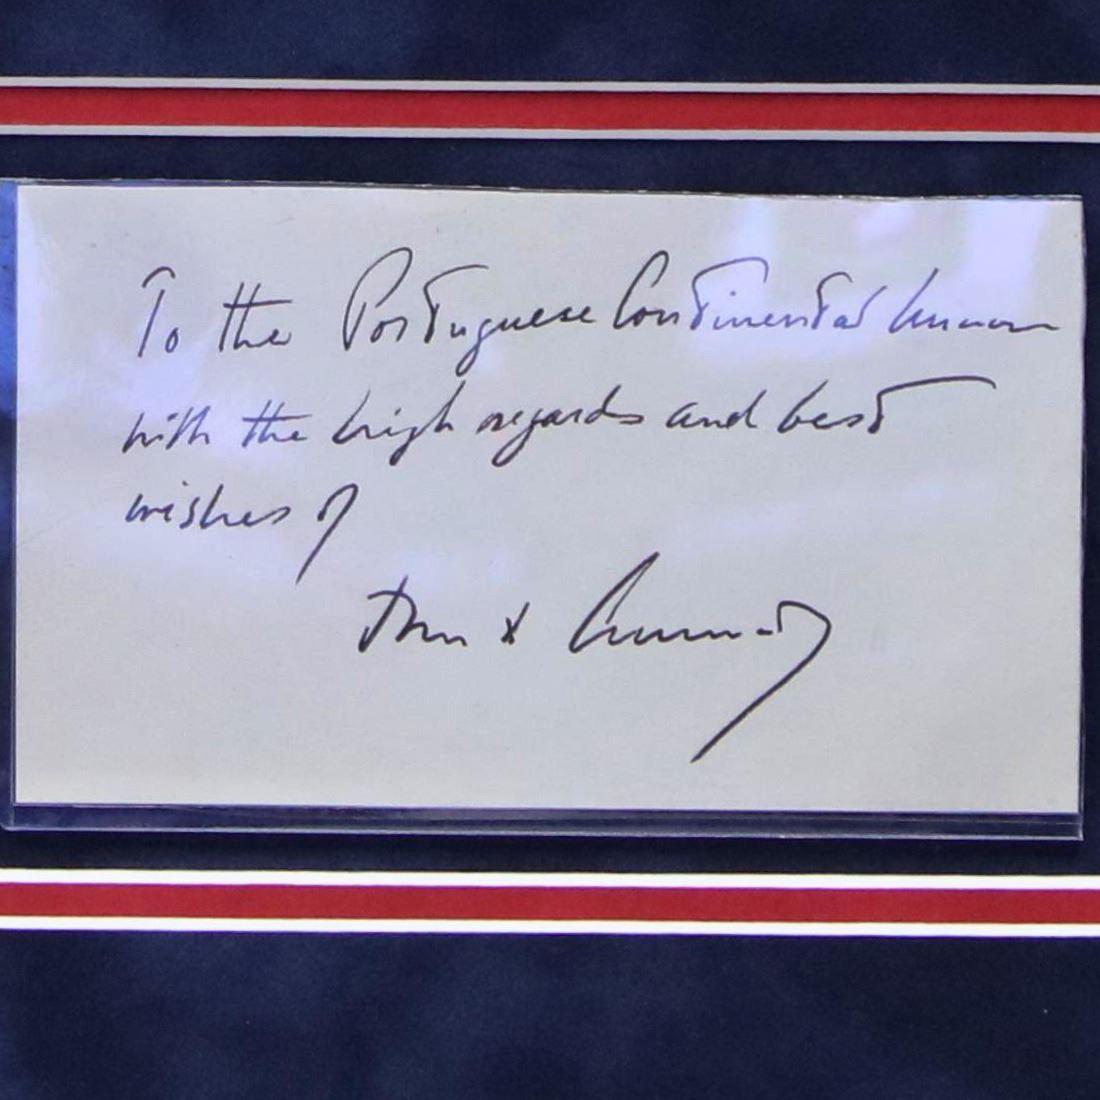 To the Portuguese Continental Union
with the high regards and best
wishes of
John Kennedy